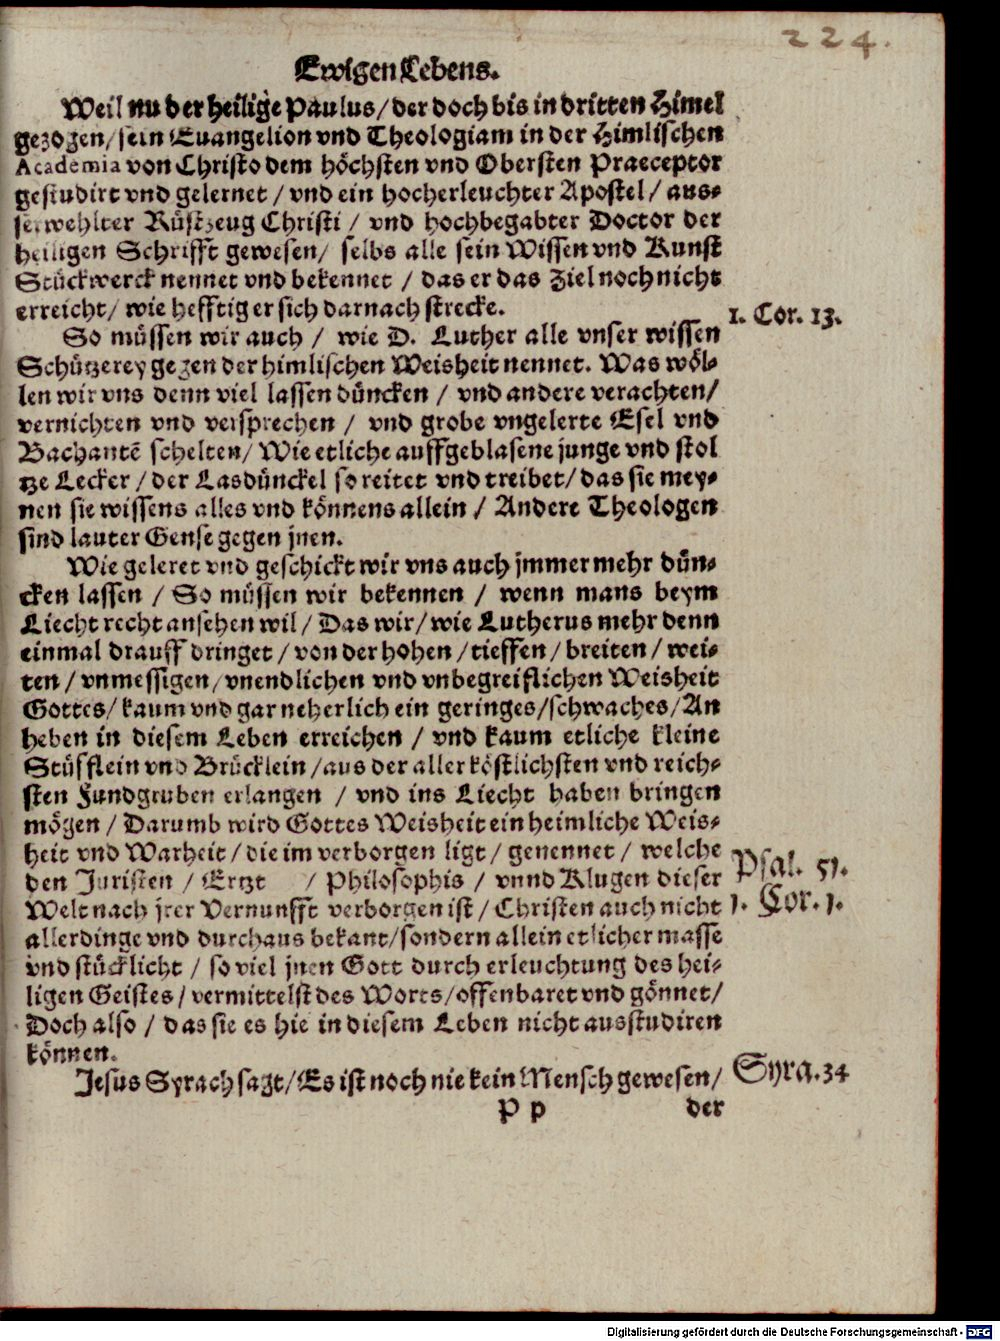 224.
Ewigen Lebens.
Weil nu der heilige Paulus / der doch bis in dritten Himel
gezogen / sein Euangelion vnd Theologiam in der Himlischen
Academia von Christo dem höchsten vnd Obersten Praeceptor
gestudirt vnd gelernet / vnd ein hocherleuchter Apostel / aus-
serwehlter Rüstzeug Christi / vnd hochbegabter Doctor der
heiligen Schrifft gewesen / selbs alle sein Wissen vnd Kunst
Stückwerck nennet vnd bekennet / das er das Ziel noch nicht
erreicht / wie hefftig er sich darnach strecke.
1. Cor. 13.
So müssen wir auch / wie D. Luther alle vnser wissen
Schützerey gegen der himlischen Weisheit nennet. Was wöl-
len wir vns denn viel lassen düncken / vnd andere verachten /
vernichten vnd versprechen / vnd grobe vngelerte Esel vnd
Bachantē schelten / Wie etliche auffgeblasene junge vnd stol
tze Lecker / der Lasdünckel so reitet vnd treibet / das sie mey-
nen sie wissens alles vnd könnens allein / Andere Theologen
sind lauter Gense gegen jnen.
Wie geleret vnd geschickt wir vns auch jmmer mehr dün-
cken lassen / So müssen wir bekennen / wenn mans beym
Liecht recht ansehen wil / Das wir / wie Lutherus mehr denn
einmal drauff dringet / von der hohen / tieffen / breiten / wei-
ten / vnmessigen / vnendlichen vnd vnbegreiflichen Weisheit
Gottes / kaum vnd gar neherlich ein geringes / schwaches / An
heben in diesem Leben erreichen / vnd kaum etliche kleine
Stüfflein vnd Bröcklein / aus der aller köstlichsten vnd reich-
sten Fundgruben erlangen / vnd ins Liecht haben bringen
mögen / Darumb wird Gottes Weisheit ein heimliche Weis-
heit vnd Warheit / die im verborgen ligt / genennet / welche
den Juristen / Ertzt / Philosophis / vnnd Klugen dieser
Psal. 51.
Welt nach jrer Vernunfft verborgen ist / Christen auch nicht
1. Cor. 1.
allerdinge vnd durchaus bekant / sondern allein etlicher masse
vnd stücklicht / so viel jnen Gott durch erleuchtung des hei-
ligen Geistes / vermittelst des Worts / offenbaret vnd gönnet /
Doch also / das sie es hie in diesem Leben nicht ausstudiren
können.
Jesus Syrach sagt / Es ist noch nie kein Mensch gewesen /
Syra. 34
P p der
Digitalisierung gefördert durch die Deutsche Forschungsgemeinschaft - DFG